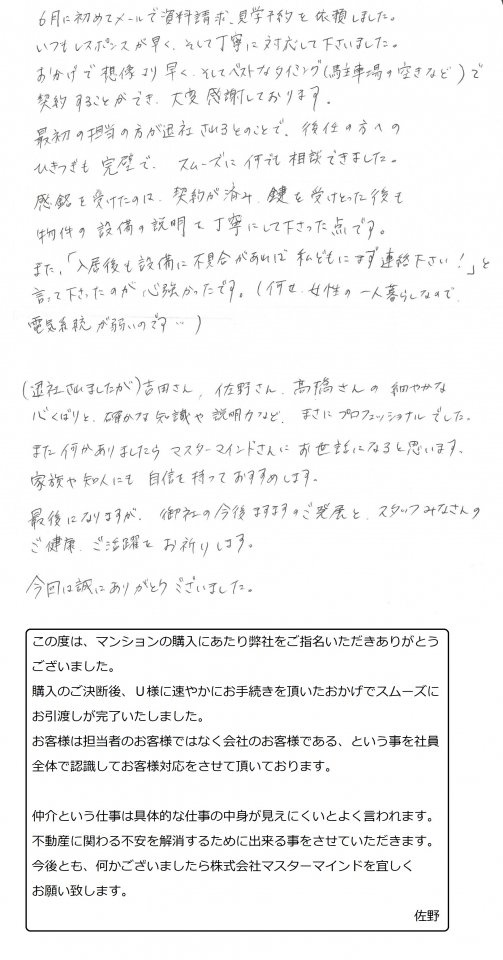 6月に初めてメールで資料請求、見学予約を依頼しました。
いつもレスポンスが早く、そして丁寧に対応して下さいました。
おかげで想像より早く、そしてベストなタイミング(駐車場の空きなど)で
契約することができ、大変感謝しております。
最初の担当の方が退社されるとのことで、後任の方への
ひきつぎも完璧で、スムーズに何でも相談できました。
感銘を受けたのは、契約が済み、鍵を受けとった後も
物件の設備の説明を丁寧にして下さった点です。
また、「入居後も設備に不具合があれば私どもにまず連絡下さい!」と
言って下さったのが心強かったです。(何せ、女性の一人暮らしなので、
電気系統が弱いのです…)
(退社されましたが)吉田さん、佐野さん、高橋さんの細やかな
心くばりと、確かな知識や説明力など、まさにプロフェッショナルでした。
また何かありましたらマスターマインドさんにお世話になると思います、
家族や知人にも自信を持っておすすめします。
最後になりますが、御社の今後ますますのご発展と、スタッフみなさんの
ご健康、ご活躍をお祈りします。
今回は誠にありがとうございました。
この度は、マンションの購入にあたり弊社をご指名いただきありがとう
ございました。
購入のご決断後、U様に速やかにお手続きを頂いたおかげでスムーズに
お引渡しが完了いたしました。
お客様は担当者のお客様ではなく会社のお客様である、という事を社員
全体で認識してお客様対応をさせて頂いております。
仲介という仕事は具体的な仕事の中身が見えにくいとよく言われます。
不動産に関わる不安を解消するために出来る事をさせていただきます。
今後とも、何かございましたら株式会社マスターマインドを宜しく
お願い致します。
佐野